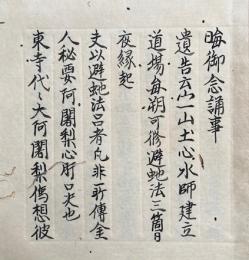 晦御念誦事
遺告云宀一山土心水師建立
道場每朔可修避虵法三箇日
夜縁起
夫以避虵法呂者凡非所傳金
人秘要阿闍梨心肝口夬也
東寺代々大阿闍梨想彼